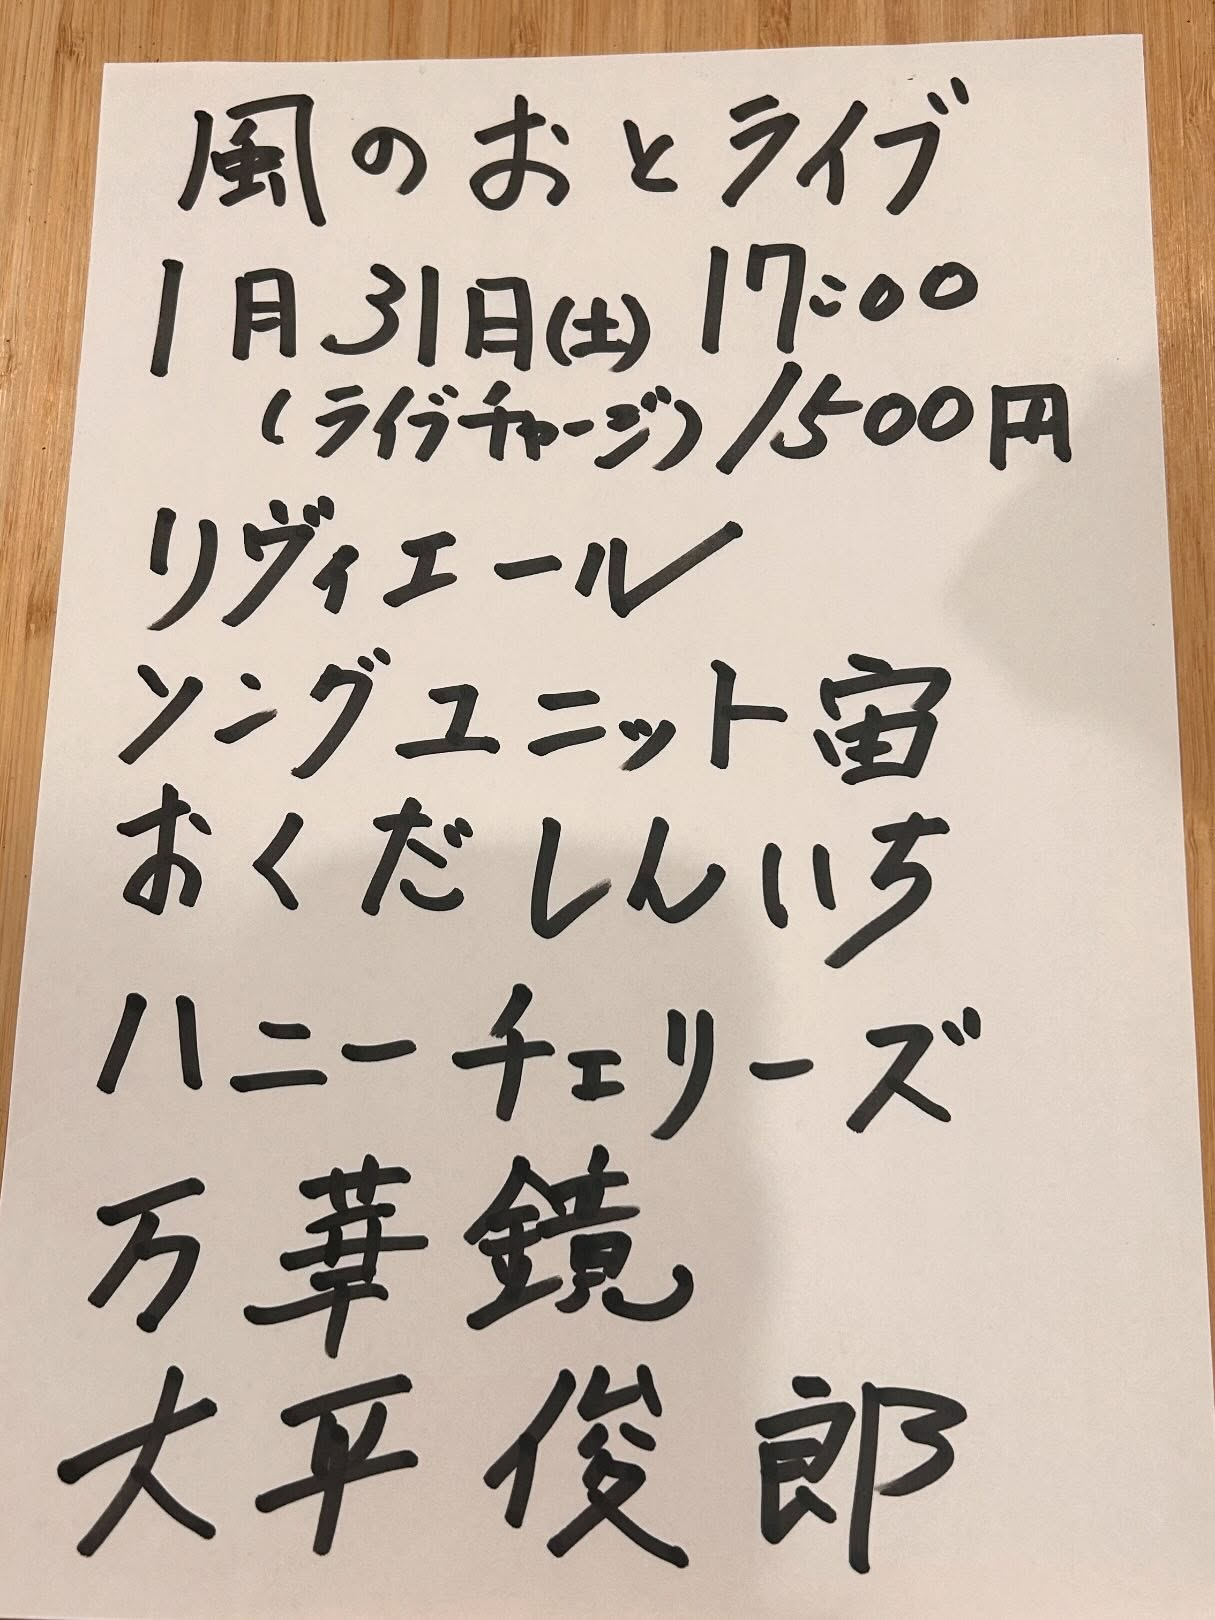 風のおとライブ
1月31日(土) 17:00
(ライブチャージ) 1500円
リヴィエール
ソングユニット宙
おくだしんいち
ハニーチェリーズ
万華鏡
大平俊郎